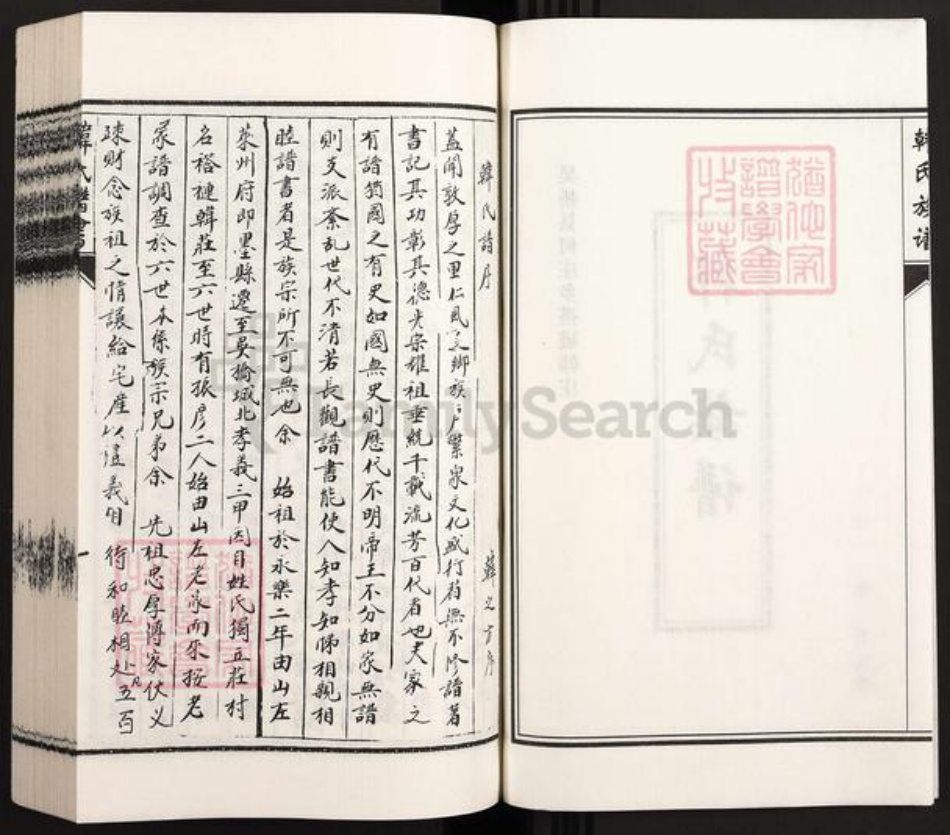 韓氏族譜
猶他家
譜學會
收藏
韓氏譜序 韓之方序
蓋聞敦厚之里仁風之鄉族戶繁衆文化盛行者無不修譜著
書記其功彰其德光宗耀祖垂統千載流芳百代者也夫家之
有譜猶國之有史如國無史則歷代不明帝王不分如家無譜
則支派紊乱世代不清若長觀譜書能使人知孝知悌相親相
睦譜書者是族宗所不可無也余 始祖於永樂二年由山左
萊州府即墨縣遷至吳橋城北孝義三甲因目姓氏獨立莊村
名褡褳韓莊至六世時有振彦二人始由山左老家而來按老
家譜調查於六世本係族宗兄弟余 先祖忠厚傳家伏义
疎財念族祖之情讓給宅產以愷義 待和睦相处凡五百
韓氏譜書
FamilySearch